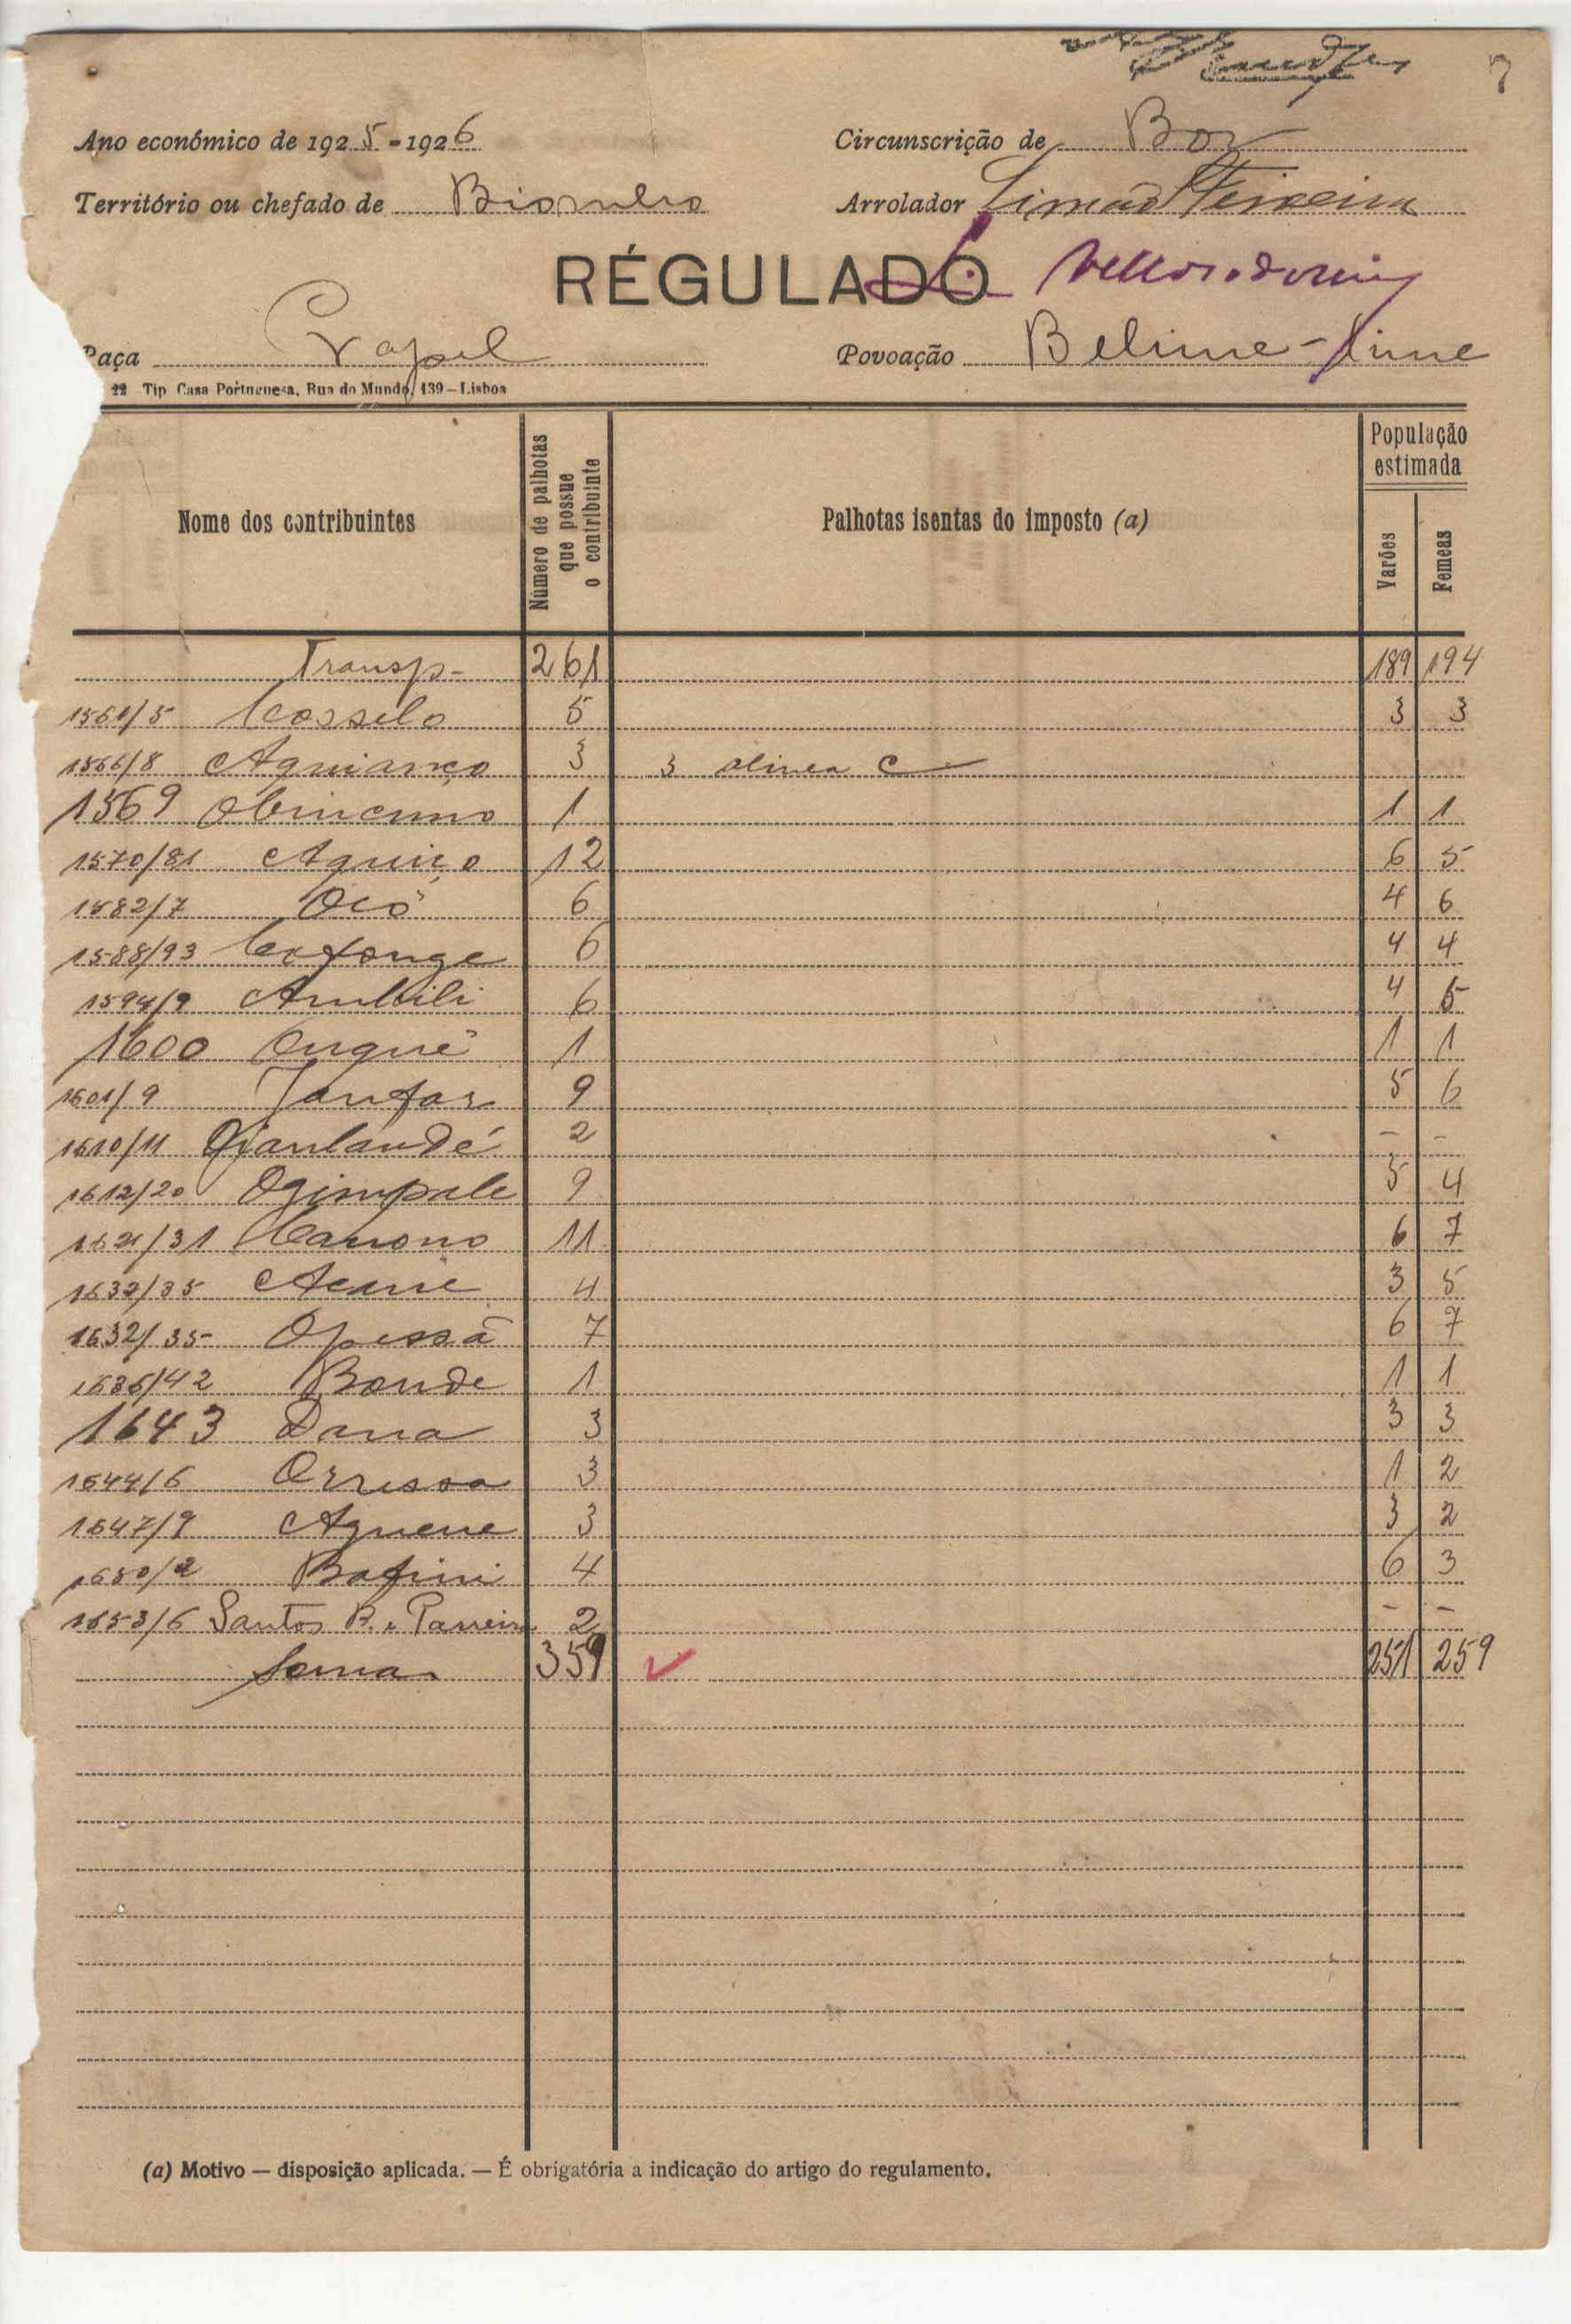 7
Ano económico de 1925-1926
Circunscrição de Bor
Território ou chefado de Biombo
Arrolador Simão Teixeira
RÉGULADO
Raça Papel
Povoação Belime-
22 Tip Casa Portuguesa, Rua do Mundo, 139-Lisboa
Nome dos contribuintes
Número de palhotas que possue o contribuinte
Palhotas isentas do imposto (a)
População estimada
Varões
Femeas
Transp- 261 189 194
1561/5 Cosselo 5 3 3
1566/8 Aguianço 3 3 alinea C
1569 1 1 1
1570/81 Aguiço 12 6 5
1582/7 Ocó 6 4 6
1588/93 Cafonge 6 4 4
1594/9 Ambili 6 4 5
1600 Ongué 1 1 1
1601/9 Janfar 9 5 6
1610/11 2 - -
1612/20 Ogimpale 9 5 4
1621/31 Canono 11 6 7
1632/35 4 3 5
1632/35 Opessã 7 6 7
1636/42 Bonde 1 1 1
1643 Dana 3 3 3
1644/6 Orressa 3 1 2
1647/9 Aguene 3 3 2
1650/2 Bafini 4 6 3
1653/6 Santos B. Parreira 2 - -
Soma 359 251 259
(a) Motivo — disposição aplicada. — É obrigatória a indicação do artigo do regulamento.